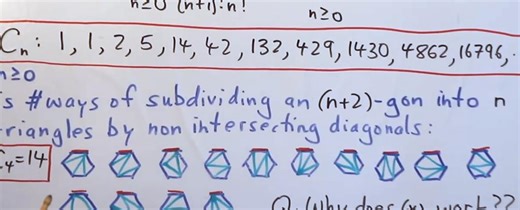 n≥0 (n+1)! n!
n≥0
Cn : 1, 1, 2, 5, 14, 42, 132, 429, 1430, 4862, 16796,
n≥0
is #ways of subdividing an (n+2)-gon into n
triangles by non intersecting diagonals:
C4=14
Q. Why does (x) work??